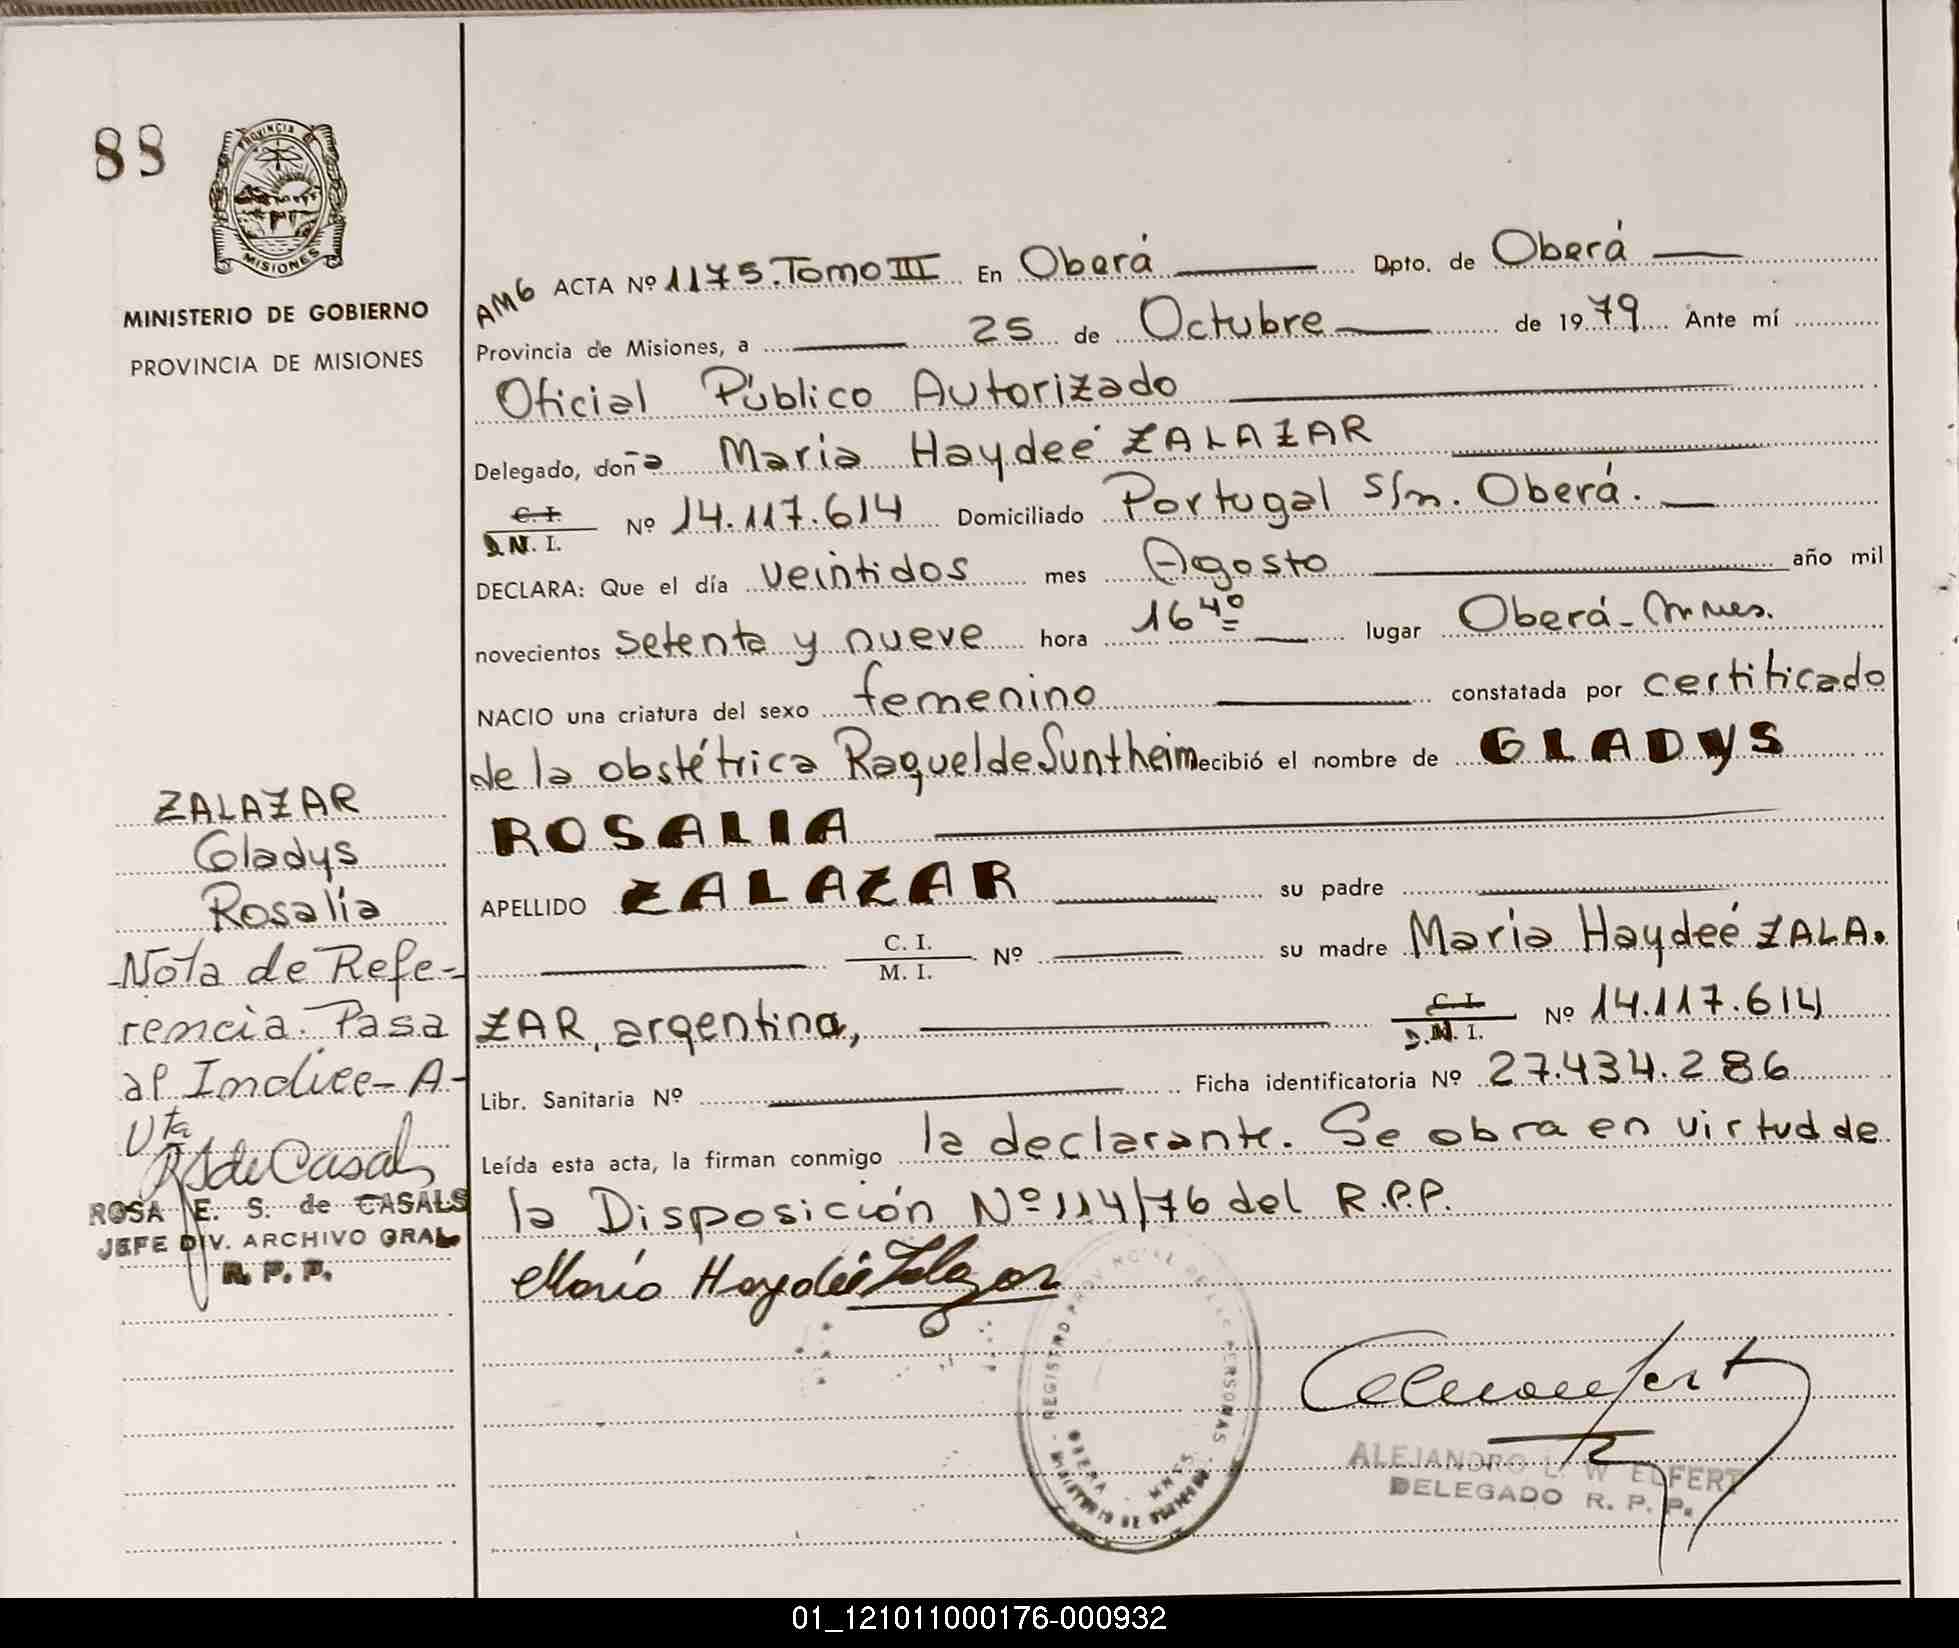 88
PROVINCIA DE
MISIONES
MINISTERIO DE GOBIERNO
PROVINCIA DE MISIONES
AMG ACTA Nº 1175. Tomo III En Oberá Dpto. de Oberá
Provincia de Misiones, a 25 de Octubre de 1979 Ante mí
Oficial Público Autorizado
Delegado, doña Maria Haydeé ZALAZAR
C. I.
D.N. I. Nº 14.117.614 Domiciliado Portugal s/n. Oberá.
DECLARA: Que el día veintidos mes Agosto año mil
novecientos setenta y nueve hora 16 40 lugar Oberá - Mnes.
NACIO una criatura del sexo femenino constatada por certificado
de la obstétrica Raquel de Suntheim ecibió el nombre de GLADYS
ROSALIA
APELLIDO ZALAZAR su padre
C. I.
M. I. Nº su madre Maria Haydeé ZALA.
ZAR, argentina, C. I.
D.N. I. Nº 14.117.614
Libr. Sanitaria Nº Ficha identificatoria Nº 27.434.286
Leída esta acta, la firman conmigo la declarante. Se obra en virtud de
la Disposición Nº 114/76 del R.P.P.
María Haydeé Zalazar
ZALAZAR
Gladys
Rosalía
Nota de Refe-
rencia. Pasa
al Indice - A -
Vta
RS de Casals
ROSA E. S. de CASALS
JEFE DIV. ARCHIVO GRAL
R. P. P.
REGISTRO PROVINCIAL DE LAS PERSONAS
MINISTERIO DE GOBIERNO
OBERA - MNES
ALEJANDRO L. W ELFERT
DELEGADO R. P. P.
01_121011000176-000932